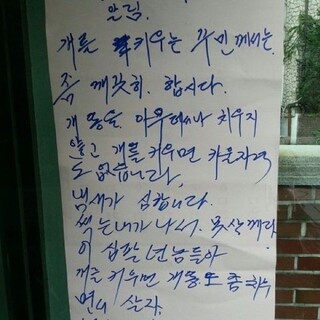 알림.
개를 키우는 주민께서는.
좀 깨끗히. 합시다.
개 똥을 아무데나 치우지
않고 개를 키우면 키울자격
도 없습니다,
냄새가 심합니다.
썩는내가 나서. 못살께다
이 십팔 년놈들아
개를 키우면 개똥도 좀 치우
면서 살자.